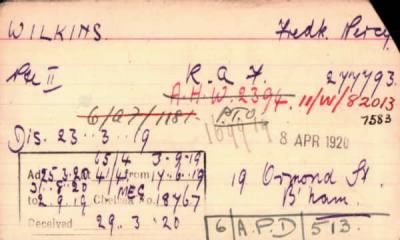 WILKINS. Fredk. Percy.
Pte II R.A.F. 277793.
A.H.W. 2394 11/W/82013
6/A7/1181 P.T.O. 7583
Dis. 23..3..19 8 APR 1920
65/4 3-9-19
25.3.20 4/4 from 17-6-19
31.8.20 MEG
to 2.9.19 Chelsea No. 18767
Received 29..3..20
19 Ormond St.
B'ham.
6 A.P.D 513.